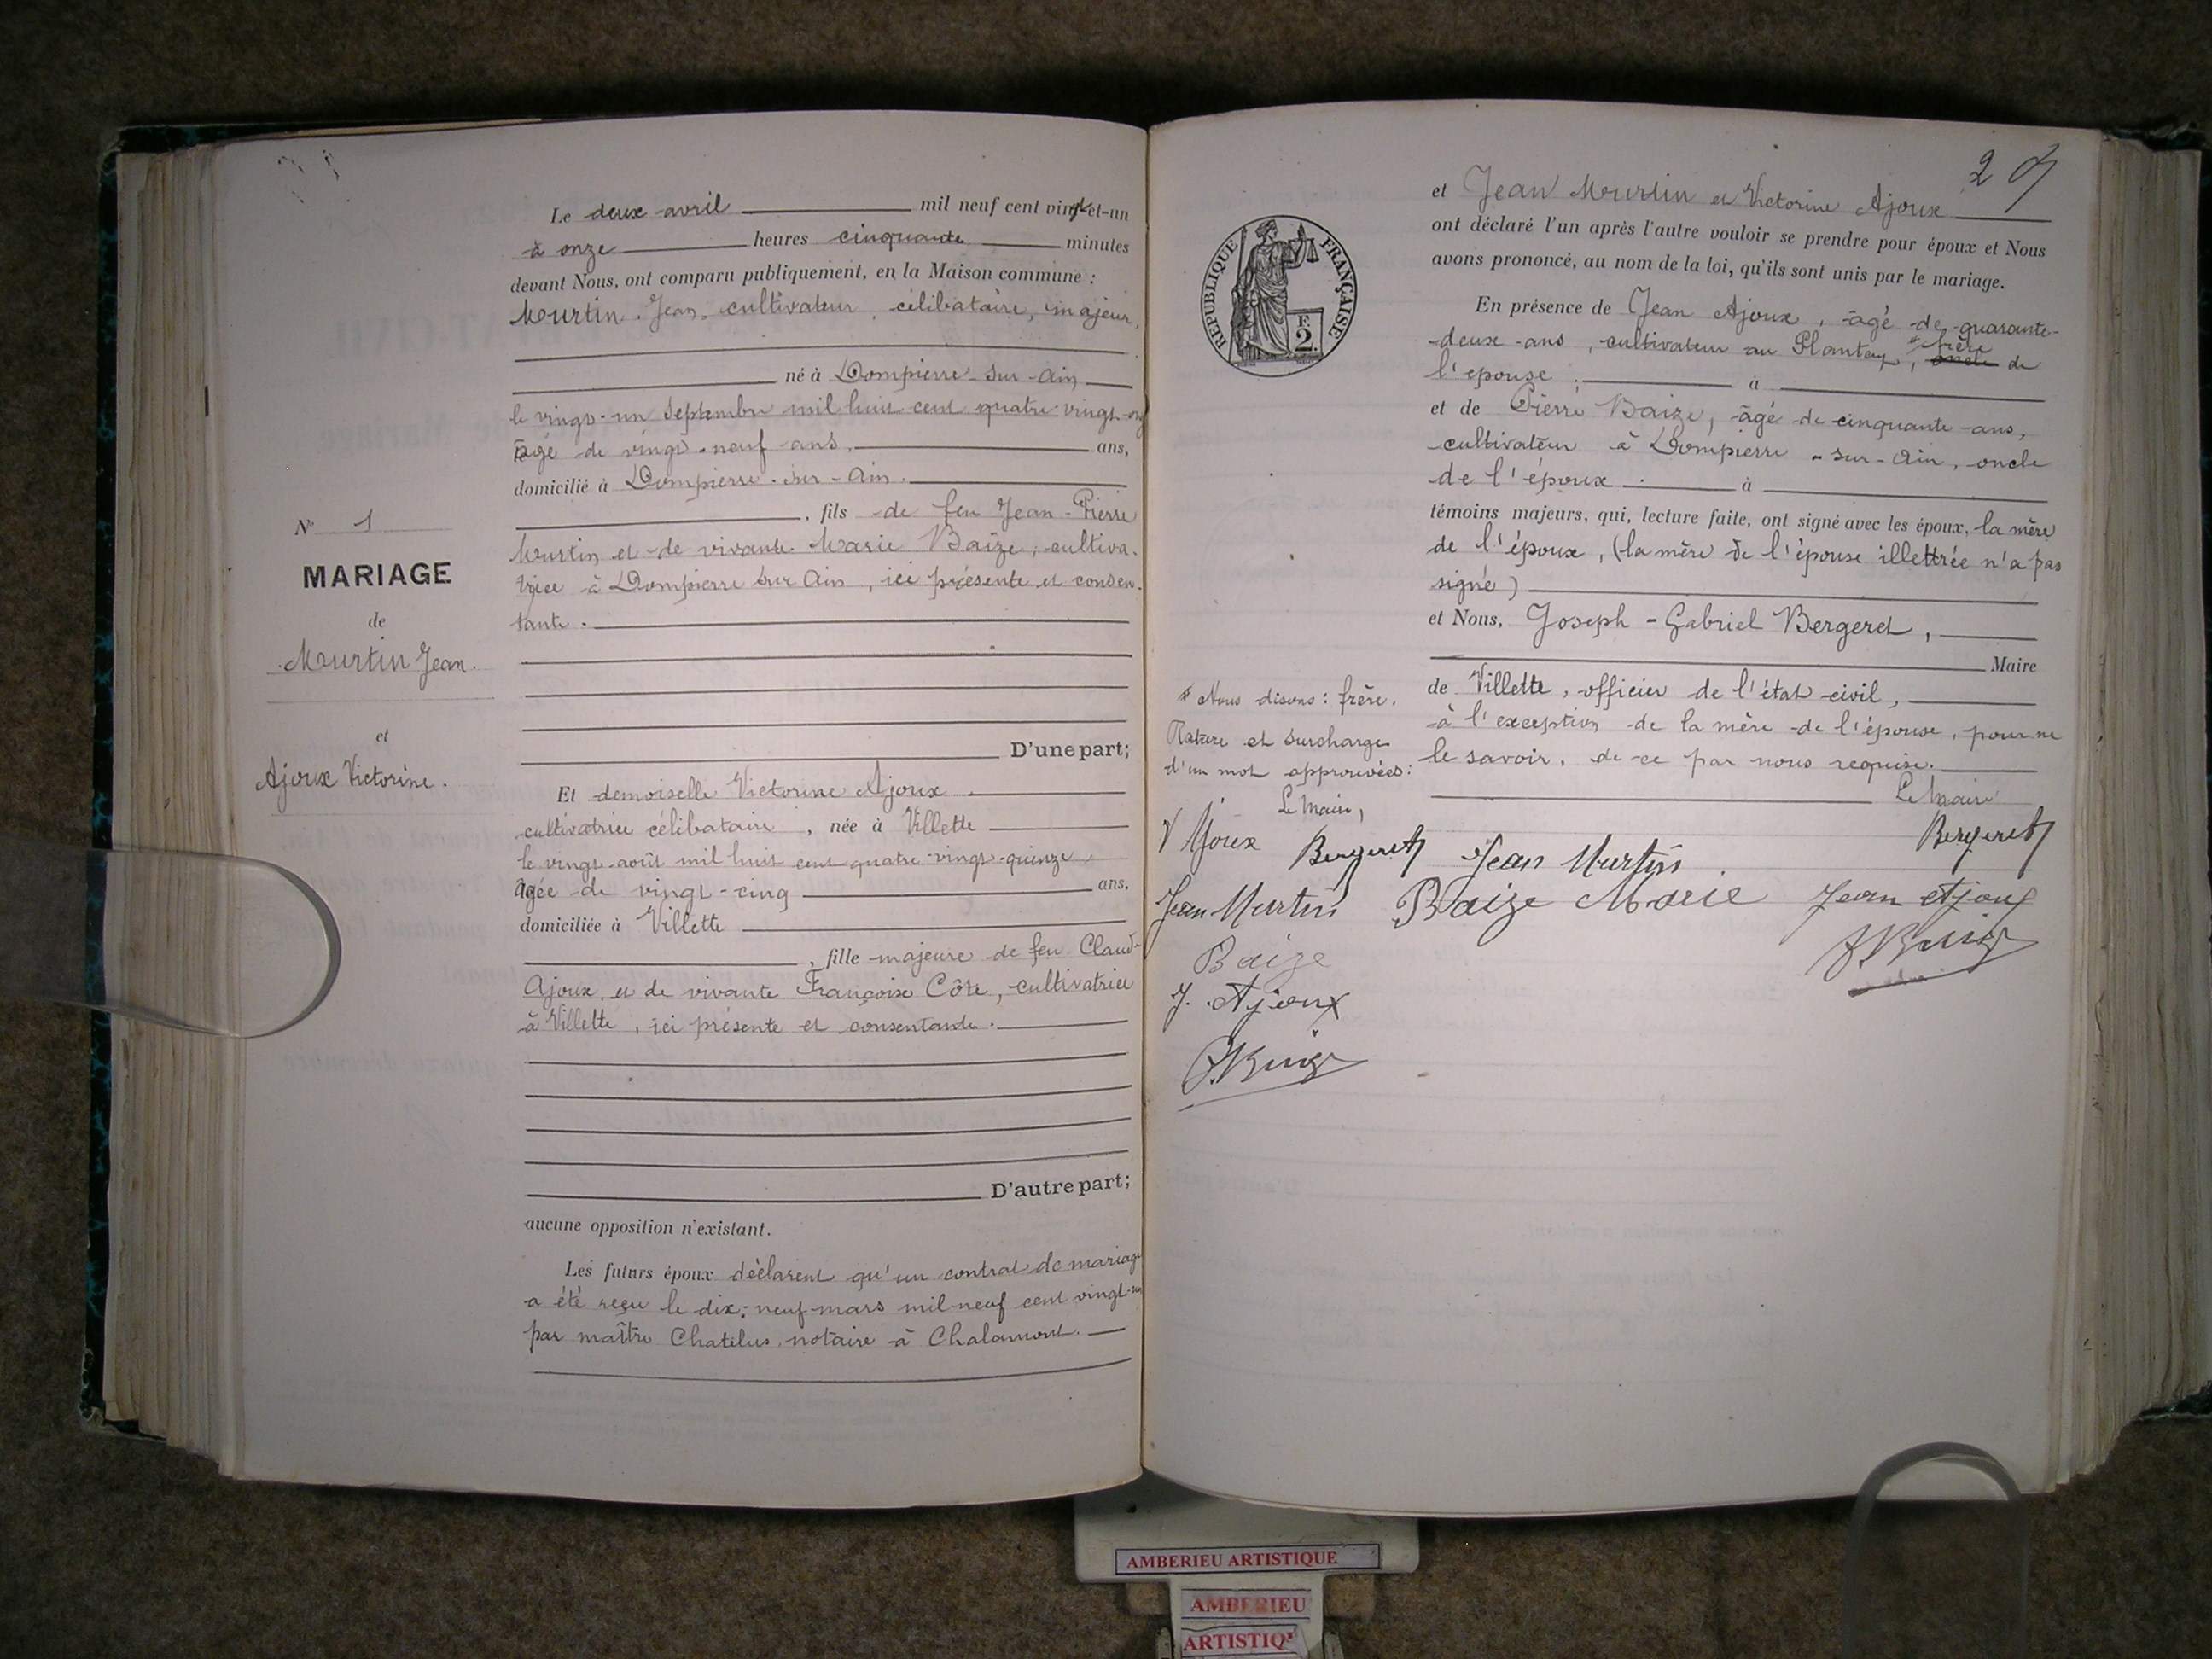 Le deux avril mil neuf cent vingt-et-un
à onze heures cinquante minutes
devant Nous, ont comparu publiquement, en la Maison commune :
Murtin Jean, cultivateur, célibataire, majeur,
né à Dompierre-sur-Ain
le vingt-un Septembre mil huit cent quatre-vingt-onze
âgé de vingt-neuf ans, ans,
domicilié à Dompierre-sur-Ain.
, fils de feu Jean-Pierre
N° 1
Murtin et de vivante Marie Baize, cultiva-
MARIAGE
trice à Dompierre sur Ain, ici présente et consen-
de
tante.
Murtin Jean.
et
D'une part;
Ajoux Victorine.
Et demoiselle Victorine Ajoux
cultivatrice célibataire, née à Villette
le vingt août mil huit cent quatre-vingt-quinze,
âgée de vingt-cinq ans,
domiciliée à Villette
, fille majeure de feu Claude
Ajoux et de vivante Françoise Côte, cultivatrice
à Villette, ici présente et consentante.
D'autre part;
aucune opposition n'existant.
Les futurs époux déclarent qu'un contrat de mariage
a été reçu le dix-neuf mars mil neuf cent vingt-un
par maître Chatelus, notaire à Chalamont.
2
REPUBLIQUE FRANÇAISE
F.
2.
et Jean Murtin et Victorine Ajoux
ont déclaré l'un après l'autre vouloir se prendre pour époux et Nous
avons prononcé, au nom de la loi, qu'ils sont unis par le mariage.
En présence de Jean Ajoux, âgé de quarante-
deux ans, cultivateur au Plantay, # frère de
l'épouse; à
et de Pierre Baize, âgé de cinquante ans,
cultivateur à Dompierre-sur-Ain, oncle
de l'époux. à
témoins majeurs, qui, lecture faite, ont signé avec les époux, la mère
de l'époux, (la mère de l'épouse illettrée n'a pas
signé)
et Nous, Joseph-Gabriel Bergeret,
Maire
de Villette, officier de l'état civil,
à l'exception de la mère de l'épouse, pour ne
le savoir, de ce par nous requise.
Le Maire
Bergeret
# Nous disons : frère.
Rature et surcharge
d'un mot approuvées :
Le Maire,
V Ajoux Bergeret Jean Murtin
Jean Murtin Baize Marie Jean Ajoux
Baize P. Baize
J. Ajoux
P. Baize
AMBERIEU ARTISTIQUE
AMBERIEU
ARTISTIQ